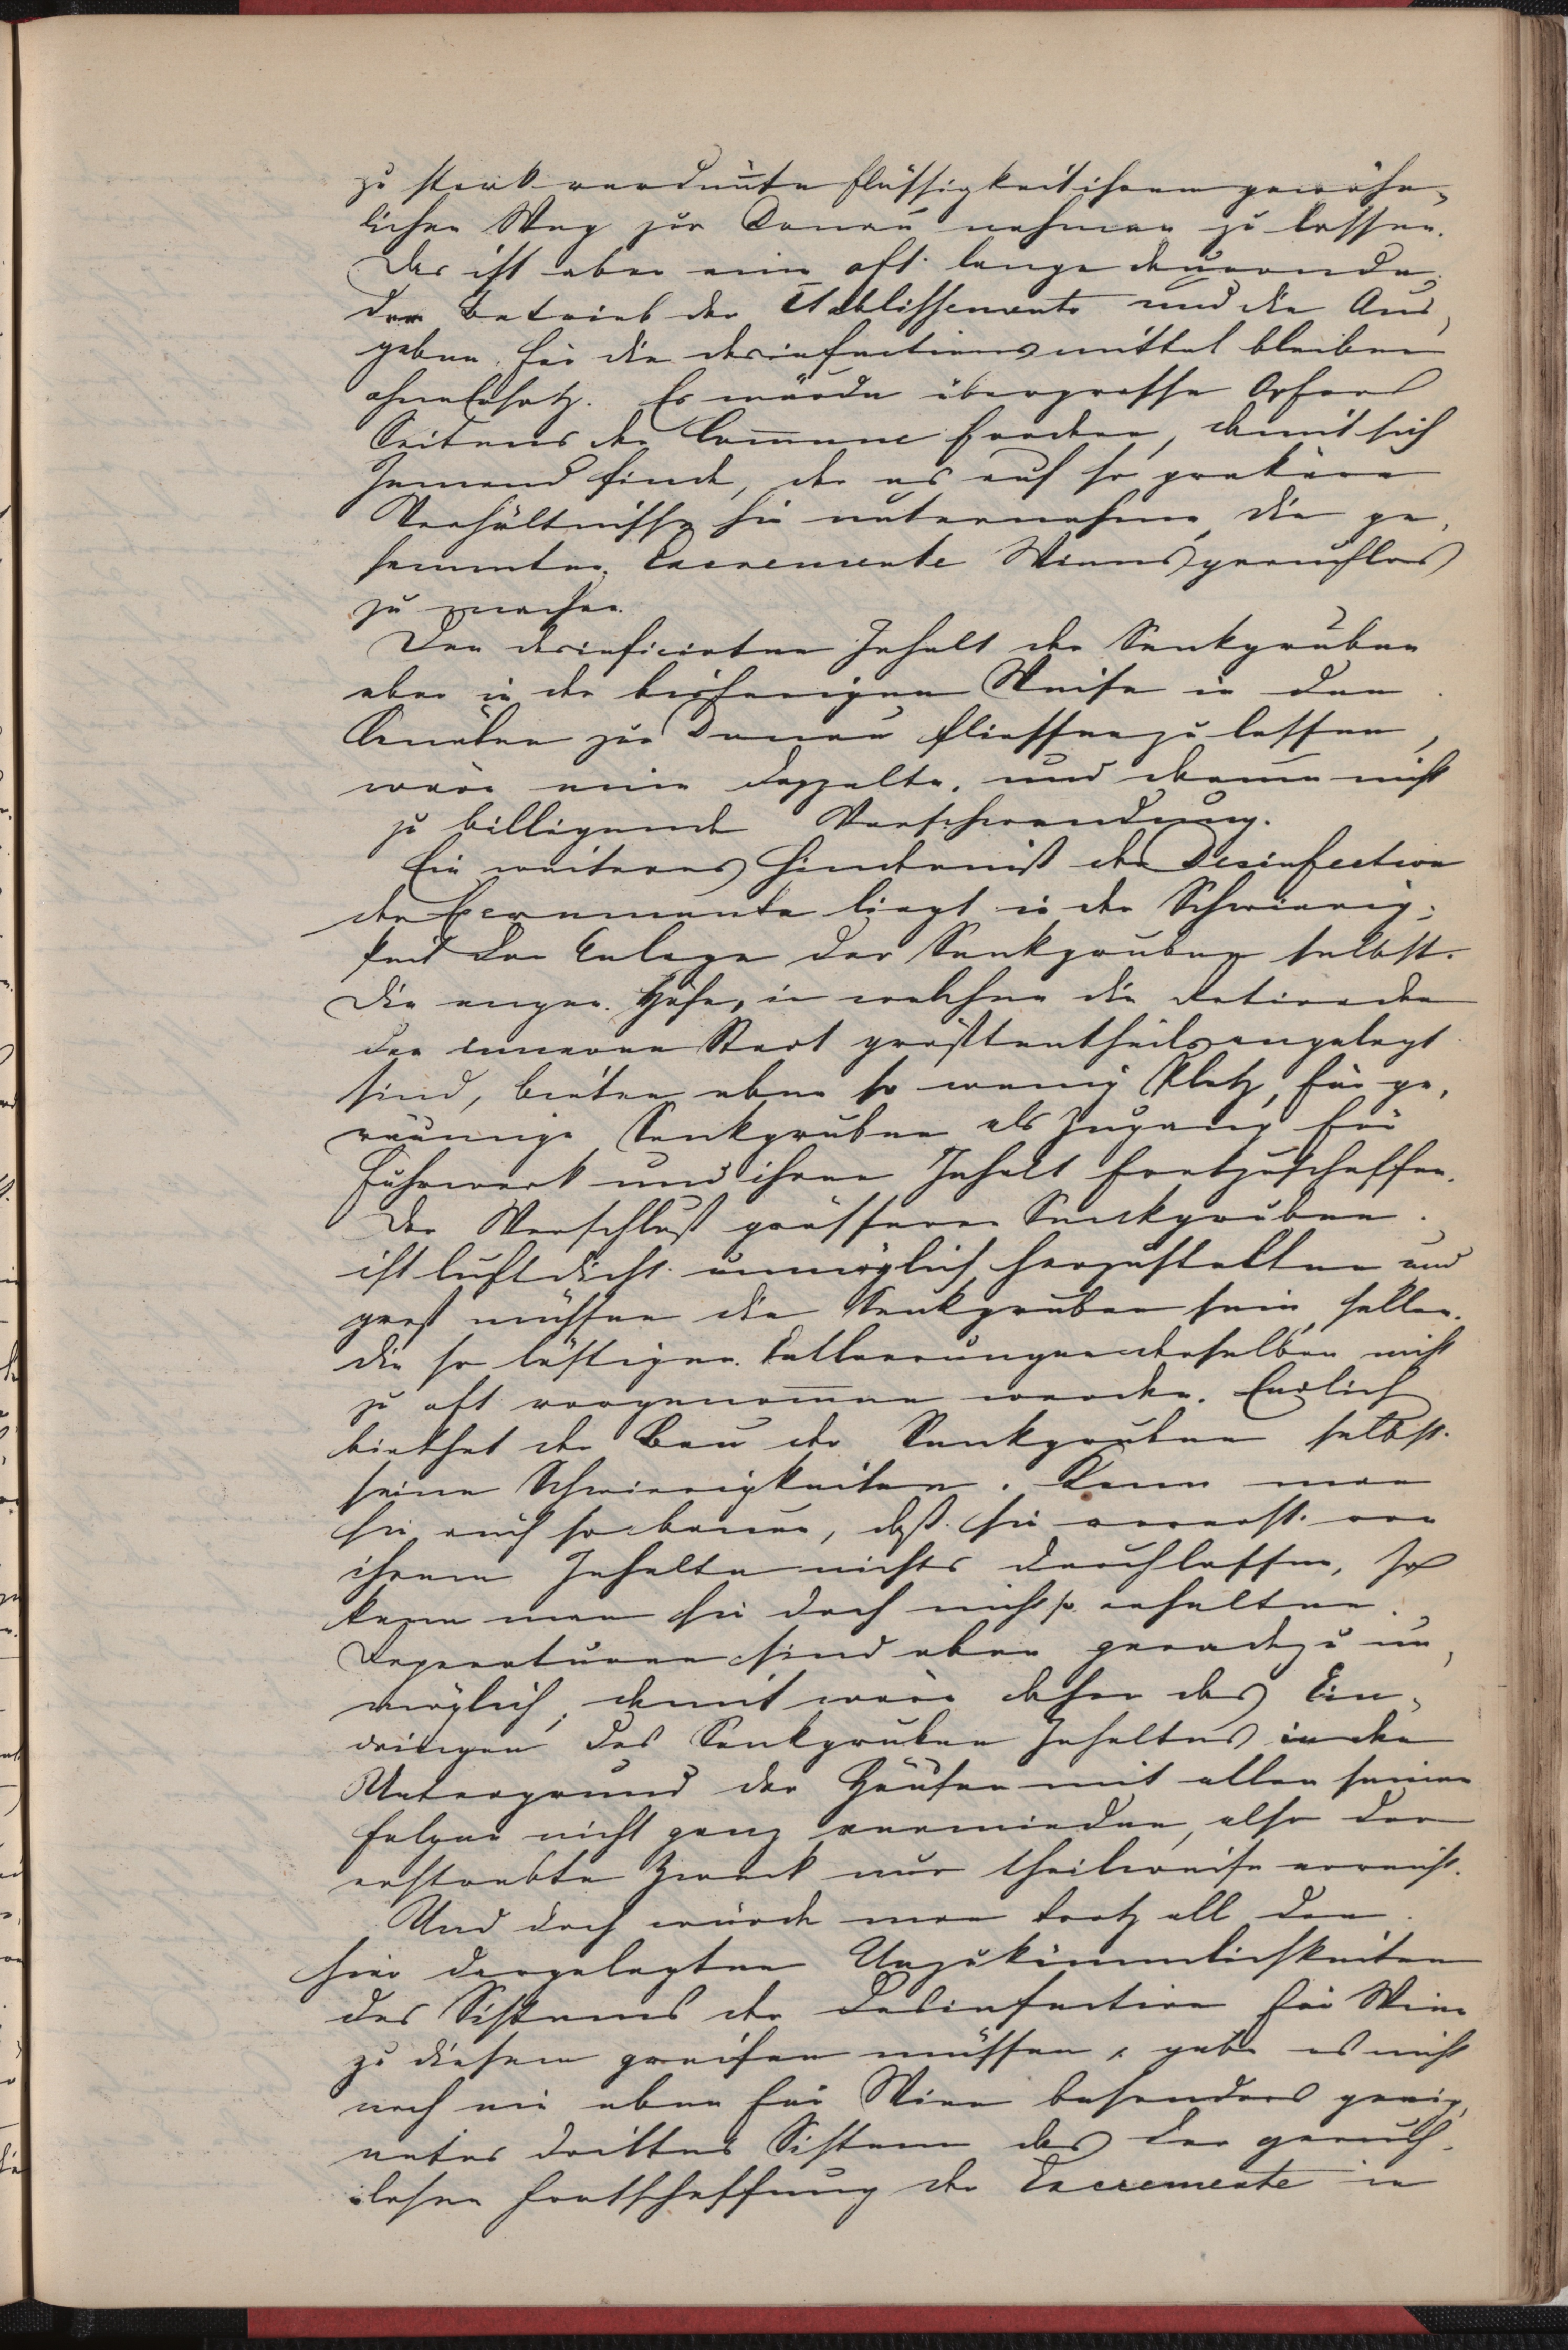 zu stark verdünnte Flüssigkeit ihren gewöhn-
lichen Weg zur Donau nehmen zu lassen.
Das ist aber eine oft lange dauernde,
der Betrieb der Etablissements und die Aus-
gaben für die Desinfectionsmittel bleiben
ohne Ersatz. Es würde übergrosse Opfer
Seitens der Commune fordern, damit sich
Jemand finde, der es auf so prekäre
Verhältnisse hin unternehme, die ge-
sammten Excremente Wiens geruchlos
zu machen.
Den desinficirten Inhalt der Senkgruben
aber in der bisherigen Weise in den
Canälen zur Donau fliessen zu lassen,
wäre eine doppelte, und darum nicht
zu billigende Verschwendung.
Ein weiteres Hinderniß der Desinfection
der Excremente liegt in der Schwierig-
keit der Anlage der Senkgruben selbst.
Die engen Höfe, in welchen die Retiraden
der inneren Stadt größtentheils angelegt
sind, bieten eben so wenig Platz, für ge-
räumige Senkgruben als Zugang für
Fuhrwerk und ihren Inhalt fortzuschaffen.
Der Verschluß grösserer Senkgruben
ist luftdicht unmöglich herzustellen und
groß müssen die Senkgruben sein, sollen
die so lästigen Entleerungen derselben nicht
zu oft vorgenommen werden. Endlich
biethet der Bau der Senkgruben selbst
seine Schwierigkeiten. Kann man
sie auch so bauen, daß sie vorerst von
ihrem Inhalte nichts durchlassen, so
kann man sie doch nicht so erhalten.
Reperaturen sind aber geradezu un-
möglich, damit wäre daher das Ein-
dringen des Senkgruben Inhaltes in den
Untergrund der Häuser mit allen seinen
Folgen nicht ganz vermieden, also der
erstrebte Zweck nur theilweise erreicht.
Und doch würde man trotz all den
hier dargelegten Unzukömmlichkeiten
des Sistems der Desinfection für Wien
zu diesem greifen müssen, gäbe es nicht
noch ein eben für Wien besonders geeig-
netes drittes Sistem das der geruch-
losen Fortschaffung der Excremente in